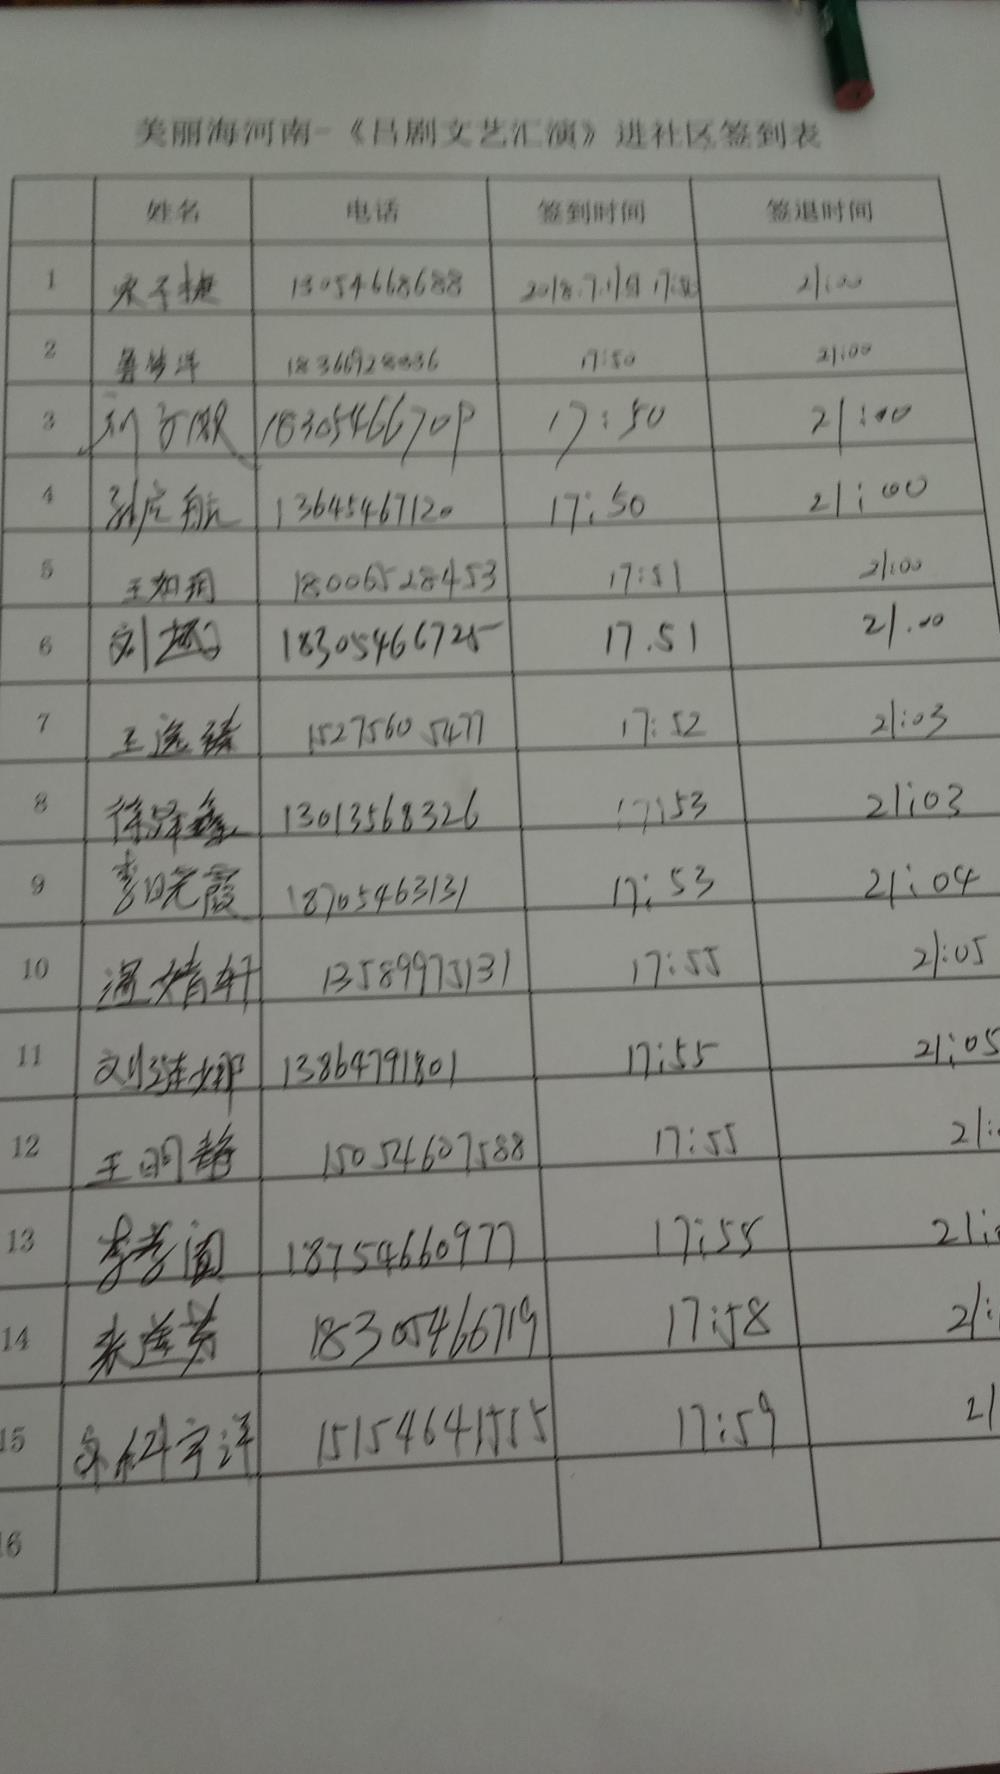 美丽海河南-《吕剧文艺汇演》进社区签到表
姓名 电话 签到时间 签退时间
1 宋子捷 13054668688 2018.7. 21:00
2 鲁梦洋 18366928836 17:50 21:00
3 1830546670P 17:50 21:00
4 孙庆航 13645467120 17:50 21:00
5 王如润 18006528453 17:51 21:00
6 刘 18305466725 17.51 21.00
7 王逸臻 15275605477 17:52 21:03
8 徐 鑫 13013568326 17:53 21:03
9 李晓霞 18705463131 17:53 21:04
10 温婧轩 13589975131 17:55 21:05
11 刘瑾娜 13864791801 17:55 21:05
12 王明静 15054607588 17:55 21:
13 李 18754660977 17:55 21:
14 18305466719 17:58 21:
15 宇洋 15154641555 17:59 21
16